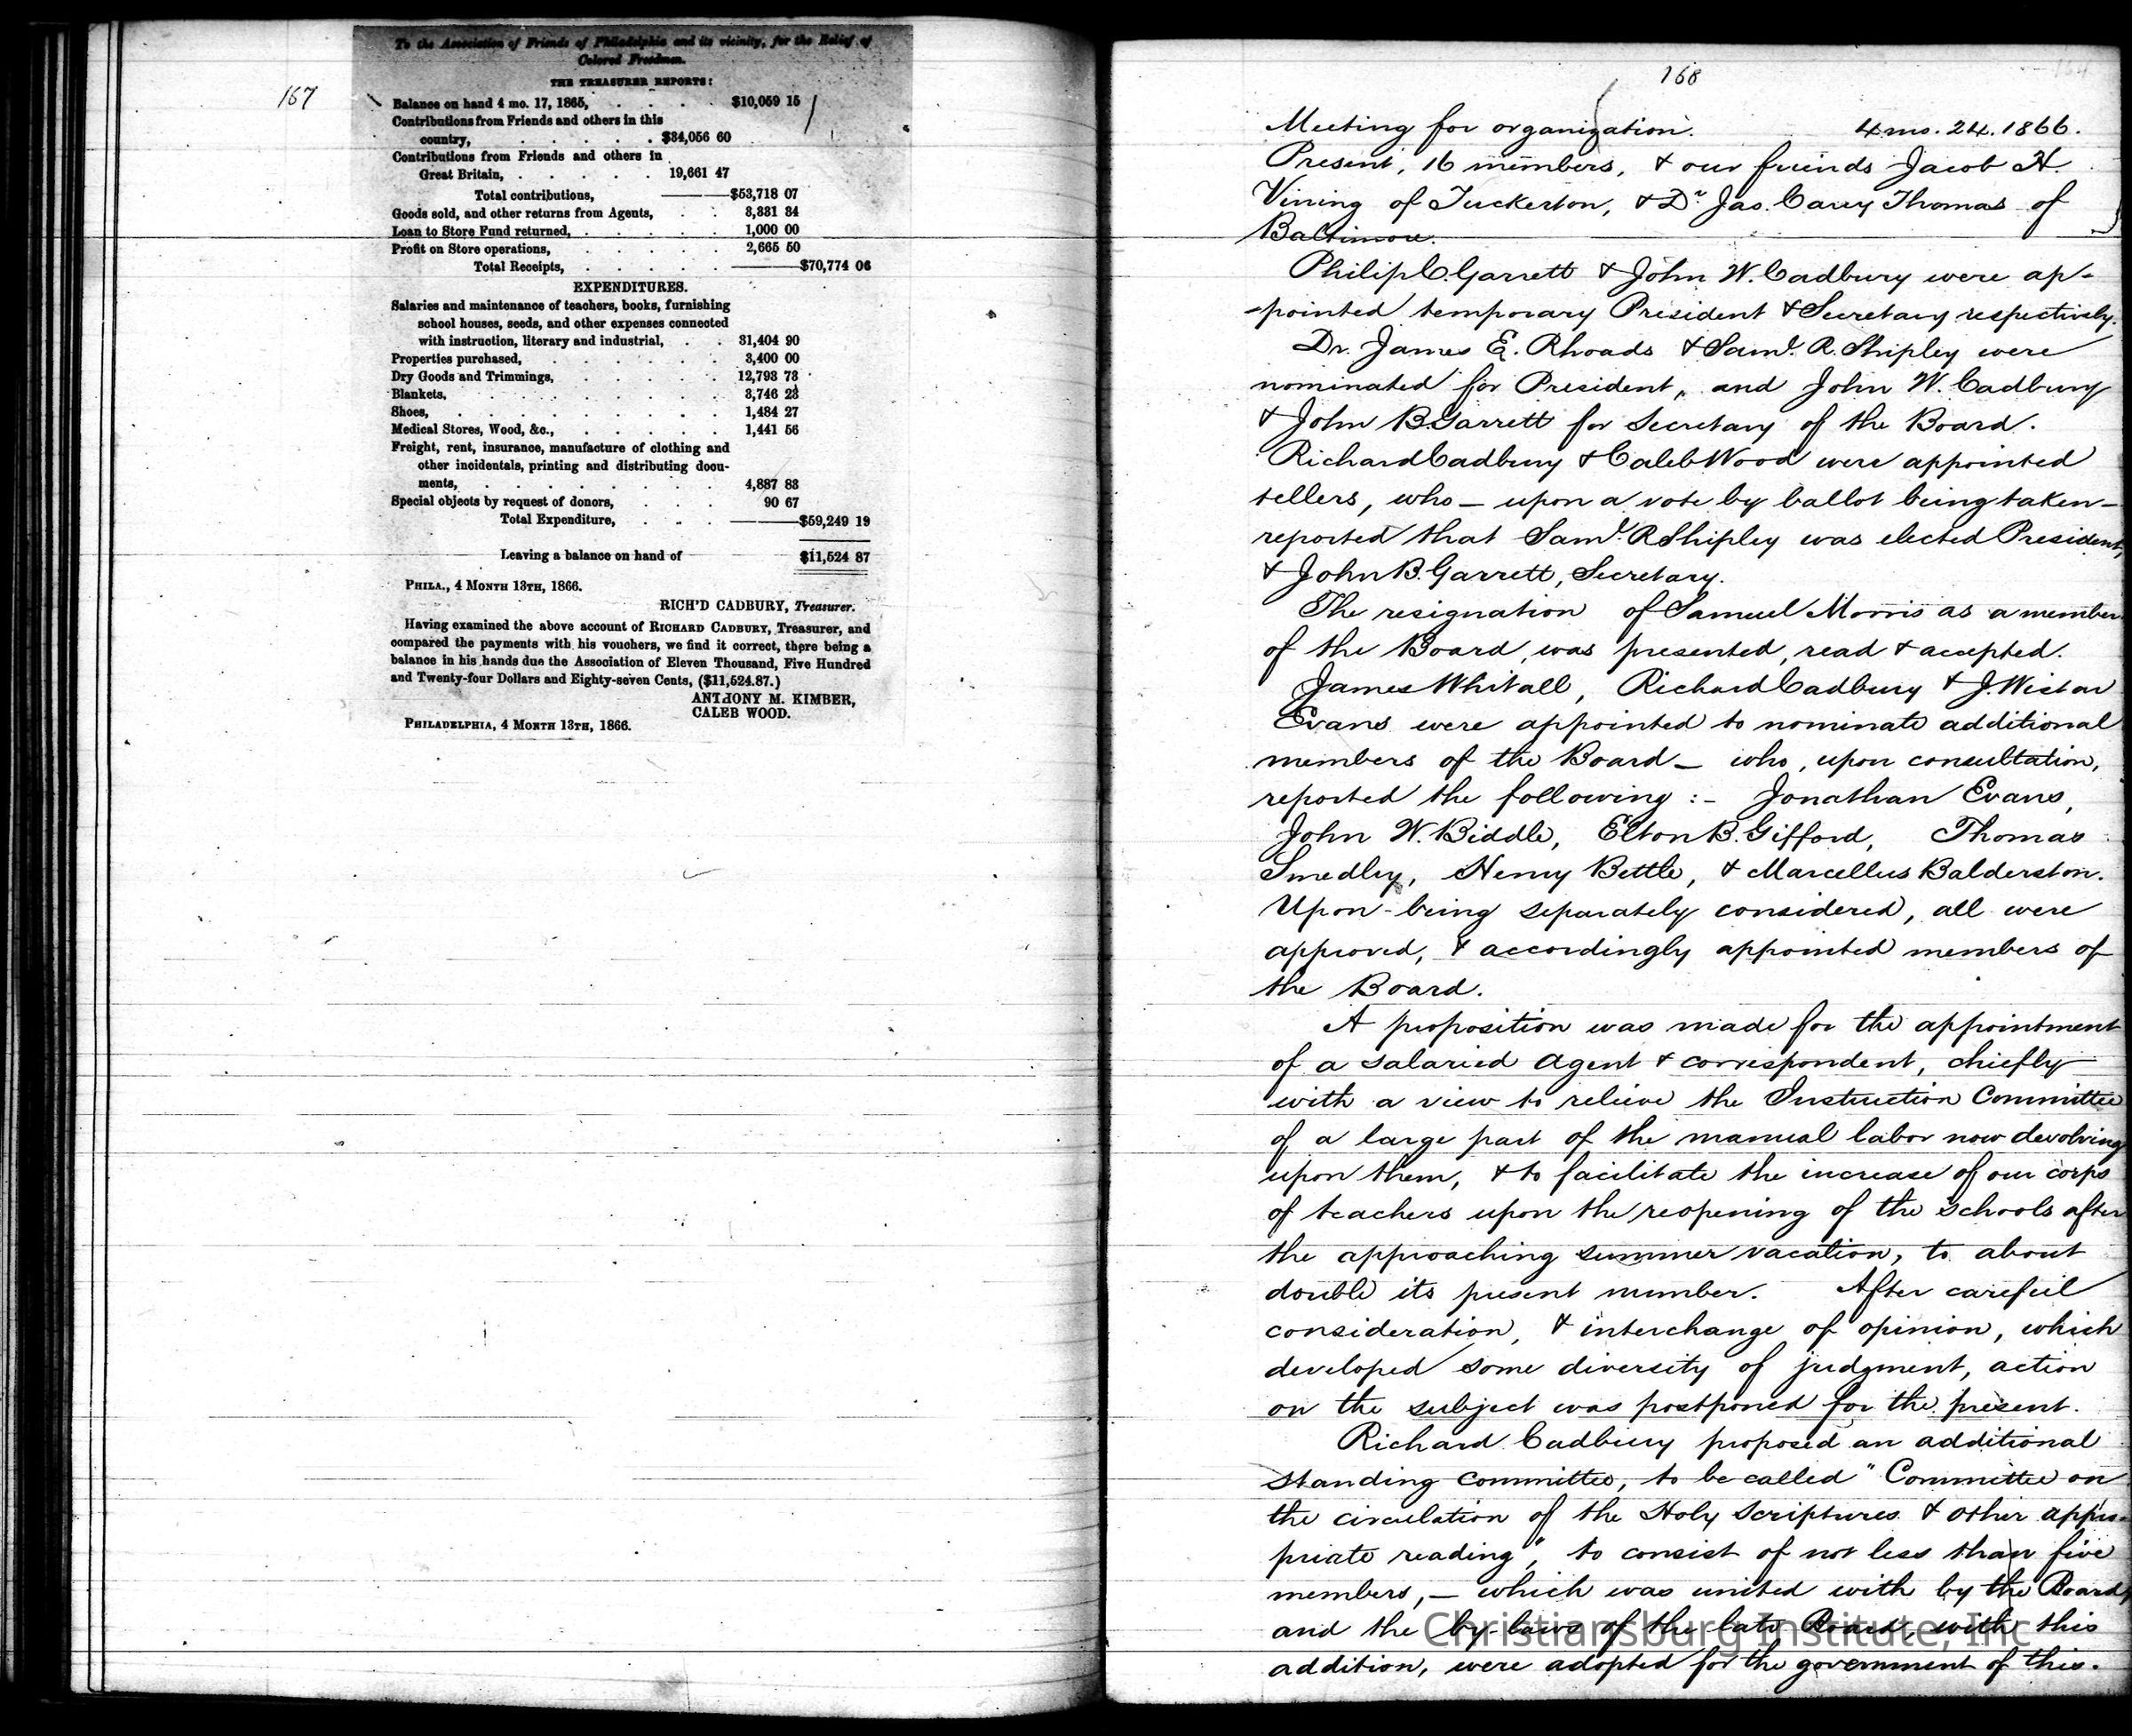 167
To the Association of Friends of Philadelphia and its vicinity, for the Relief of
Colored Freedmen.
THE TREASURER REPORTS:
Balance on hand 4 mo. 17, 1865, . . . . $10,059 15
Contributions from Friends and others in this
country, . . . . . . $34,056 60
Contributions from Friends and others in
Great Britain, . . . . . 19,661 47
Total contributions, $53,718 07
Goods sold, and other returns from Agents, . . 3,331 34
Loan to Store Fund returned, . . . . . 1,000 00
Profit on Store operations, . . . . . 2,665 50
Total Receipts, . . . . . $70,774 06
EXPENDITURES.
Salaries and maintenance of teachers, books, furnishing
school houses, seeds, and other expenses connected
with instruction, literary and industrial, . . 31,404 90
Properties purchased, . . . . . . 3,400 00
Dry Goods and Trimmings, . . . . . 12,793 73
Blankets, . . . . . . . . 3,746 23
Shoes, . . . . . . . . . 1,484 27
Medical Stores, Wood, &c., . . . . . 1,441 56
Freight, rent, insurance, manufacture of clothing and
other incidentals, printing and distributing docu-
ments, . . . . . . . . 4,887 83
Special objects by request of donors, . . . 90 67
Total Expenditure, . . . $59,249 19
Leaving a balance on hand of $11,524 87
PHILA., 4 MONTH 13TH, 1866.
RICH'D CADBURY, Treasurer.
Having examined the above account of RICHARD CADBURY, Treasurer, and
compared the payments with his vouchers, we find it correct, there being a
balance in his hands due the Association of Eleven Thousand, Five Hundred
and Twenty-four Dollars and Eighty-seven Cents, ($11,524.87.)
ANTHONY M. KIMBER,
CALEB WOOD.
PHILADELPHIA, 4 MONTH 13TH, 1866.
168
Meeting for organization. 4 mo. 24. 1866.
Present, 16 members, & our friends Jacob H.
Vining of Tuckerton, & Dr. Jas. Carey Thomas of
Baltimore.
Philip C. Garrett & John W. Cadbury were ap-
-pointed temporary President & Secretary respectively.
Dr. James E. Rhoads & Saml. R. Shipley were
nominated for President, and John W. Cadbury
& John B. Garrett for Secretary of the Board.
Richard Cadbury & Caleb Wood were appointed
tellers, who — upon a vote by ballot being taken —
reported that Saml. R Shipley was elected President,
& John B. Garrett, Secretary.
The resignation of Samuel Morris as a member
of the Board, was presented, read & accepted.
James Whitall, Richard Cadbury & J. Wistar
Evans were appointed to nominate additional
members of the Board — who, upon consultation,
reported the following :- Jonathan Evans,
John W. Biddle, Elton B. Gifford, Thomas
Smedley, Henry Bettle, & Marcellus Balderston.
Upon being separately considered, all were
approved, & accordingly appointed members of
the Board.
A proposition was made for the appointment
of a salaried agent & correspondent, chiefly
with a view to relieve the Instruction Committee
of a large part of the manual labor now devolving
upon them, & to facilitate the increase of our corps
of teachers upon the reopening of the schools after
the approaching summer vacation, to about
double its present number. After careful
consideration, & interchange of opinion, which
developed some diversity of judgment, action
on the subject was postponed for the present.
Richard Cadbury proposed an additional
standing committee, to be called "Committee on
the circulation of the Holy Scriptures & other appro-
priate reading", to consist of not less than five
members, — which was united with by the Board,
and the by-laws of the late Board, with this
addition, were adopted for the government of this.
Christiansburg Institute, Inc